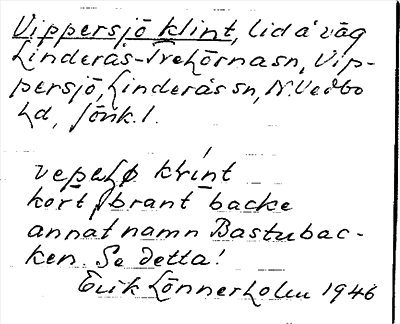 Vippersjö klint, lid å väg
Linderås-Trehörnasn, Vip-
persjö, Linderås sn, N. Vedbo
hd, Jönk.l.
kort, brant backe
annat namn Bastubac-
ken. Se detta!
Erik Lönnerholm 1946